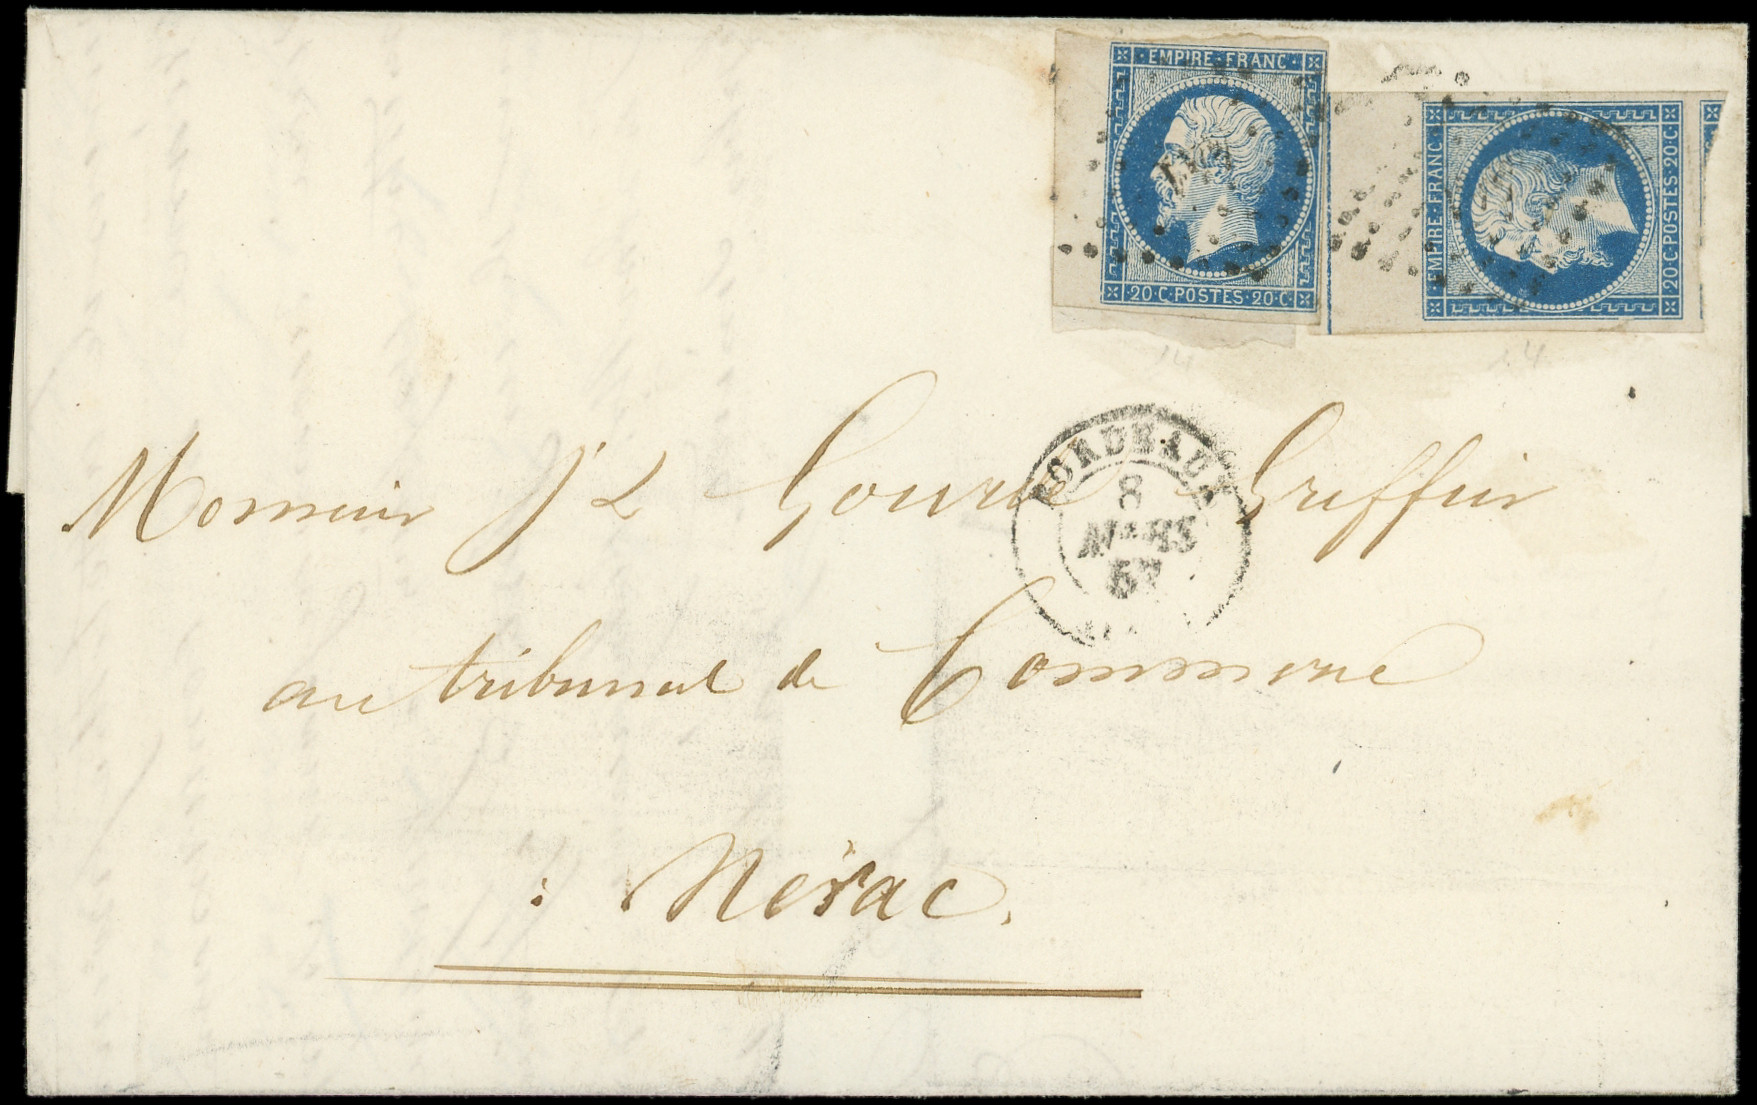 EMPIRE·FRANC·
20·C·POSTES·20·C·
EMPIRE·FRANC·
20·C·POSTES·20·C·
14
14
BORDEAUX
8
MARS
57
Monsieur J L Gourde Griffin
au tribunal de Commerce
: Nérac.